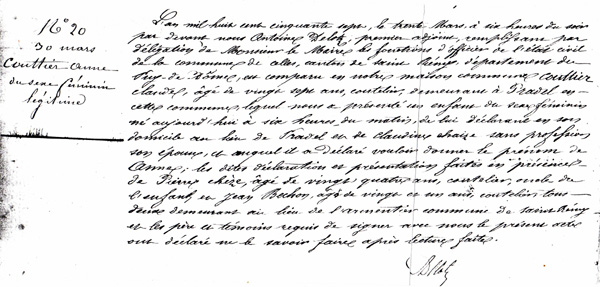 N° 20
30 mars
Couttier Anne
du sexe féminin
légitime
L'an mil huit cent cinquante sept, le trente Mars, à six heures du soir
par devant nous Antoine Delotz, premier adjoint, remplissant par
délégation de Monsieur le Maire les fonctions d'officer de l'état civil
de la commune de celles, canton de Saint Rémy, département du
Puy-de-Dôme, est comparu en notre maison commune Couttier
Claude, âgé de vingt sept ans, coutelier, demeurant à Pradel en
cette commune, lequel nous a présenté un enfant du sexe féminin
né aujourd'hui à six heures du matin, de lui déclarant en son
domicile au lieu de Pradel et de Claudine Chaize sans profession
son épouse, et auquel il a déclaré vouloir donner le prénom de
Anne; les dites déclaration et présentation faites en présence
de Pierre Chèze, âgé de vingt quatre ans, coutelier, oncle de
l'enfant, et Jean Bechon, âgé de vingt et un ans, coutelier, tous
deux demeurant au lieu de commune de Saint Rémy
et les père et témoins requis de signer avec nous le présent acte
ont déclaré ne le savoir faire après lecture faite.